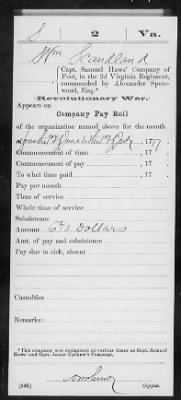 S 2 Va.
Wm Scandland
Capt. Samuel Haws' Company of
Foot, in the 2d Virginia Regiment,
commanded by Alexander Spots-
wood, Esq.*
Revolutionary War.
Appears on
Company Pay Roll
of the organization named above for the month
of June July, 1777.
Commencement of time, 17
Commencement of pay, 17
To what time paid, 17
Pay per month
Time of service
Whole time of service
Subsistence
Amount 6⅔ Dollars
Amt. of pay and subsistence
Pay due to sick, absent
Casualties
Remarks:
*This company was designated at various times as Capt. Samuel
Haws' and Capt. James Upshaw's Company.
(543) Copyist.